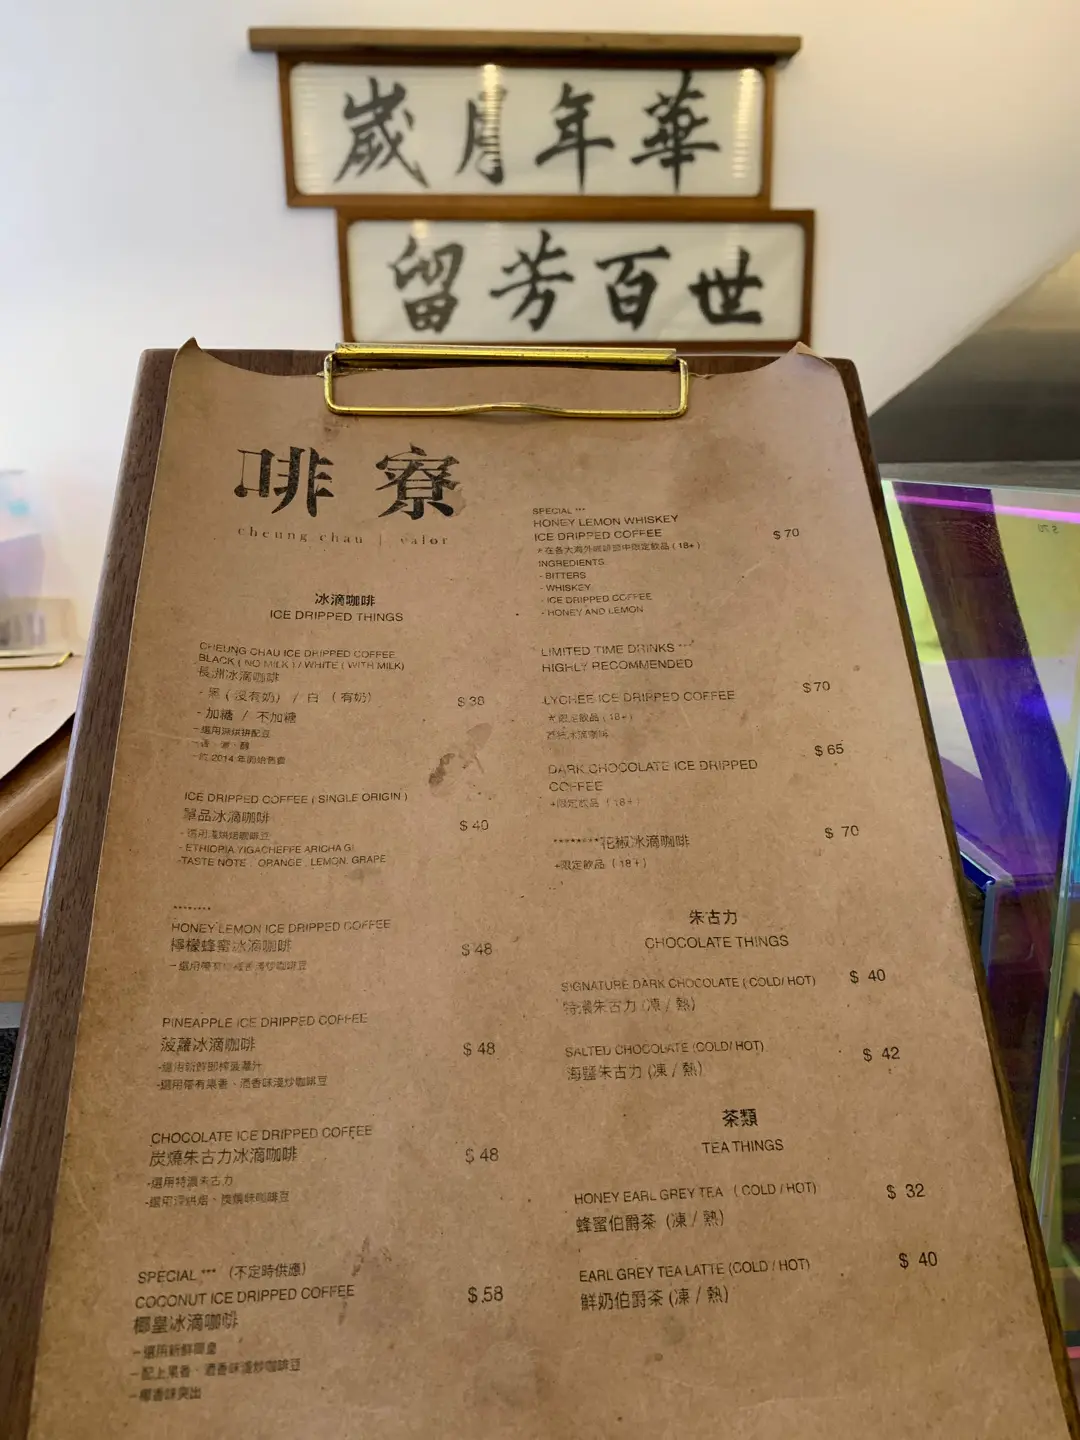 歲月年華
留芳百世
啡寮
cheung chau | valor
冰滴咖啡
ICE DRIPPED THINGS
CHEUNG CHAU ICE DRIPPED COFFEE
BLACK ( NO MILK ) / WHITE ( WITH MILK)
長洲冰滴咖啡
- 黑 ( 沒有奶) / 白 ( 有奶) $ 38
- 加糖 / 不加糖
- 選用深烘焙配豆
- 於 2014 年開始售賣
ICE DRIPPED COFFEE ( SINGLE ORIGIN )
單品冰滴咖啡 $ 40
- 選用淺烘焙咖啡豆
- ETHIOPIA YIGACHEFFE ARICHA G1
-TASTE NOTE : ORANGE , LEMON, GRAPE
********
HONEY LEMON ICE DRIPPED COFFEE
檸檬蜂蜜冰滴咖啡 $ 48
PINEAPPLE ICE DRIPPED COFFEE
菠蘿冰滴咖啡 $ 48
-選用新鮮即榨菠蘿汁
-選用帶有果香、酒香味淺炒咖啡豆
CHOCOLATE ICE DRIPPED COFFEE
炭燒朱古力冰滴咖啡 $ 48
-選用特濃朱古力
-選用深烘焙、炭燒味咖啡豆
SPECIAL *** (不定時供應)
COCONUT ICE DRIPPED COFFEE $.58
椰皇冰滴咖啡
- 選用新鮮椰皇
- 配上果香、酒香味淺炒咖啡豆
- 椰香味突出
SPECIAL ***
HONEY LEMON WHISKEY
ICE DRIPPED COFFEE $ 70
INGREDIENTS:
- BITTERS
- WHISKEY
- ICE DRIPPED COFFEE
- HONEY AND LEMON
LIMITED TIME DRINKS ***
HIGHLY RECOMMENDED
LYCHEE ICE DRIPPED COFFEE $ 70
* 限定飲品 ( 18+ )
荔枝冰滴咖啡
DARK CHOCOLATE ICE DRIPPED $ 65
COFFEE
*限定飲品 ( 18+ )
********花椒冰滴咖啡 $ 70
*限定飲品 ( 18+ )
朱古力
CHOCOLATE THINGS
SIGNATURE DARK CHOCOLATE ( COLD/ HOT) $ 40
特濃朱古力 (凍 / 熱)
SALTED CHOCOLATE (COLD/ HOT) $ 42
海鹽朱古力 (凍 / 熱)
茶類
TEA THINGS
HONEY EARL GREY TEA ( COLD / HOT) $ 32
蜂蜜伯爵茶 (凍 / 熱)
EARL GREY TEA LATTE (COLD / HOT) $ 40
鮮奶伯爵茶 (凍 / 熱)